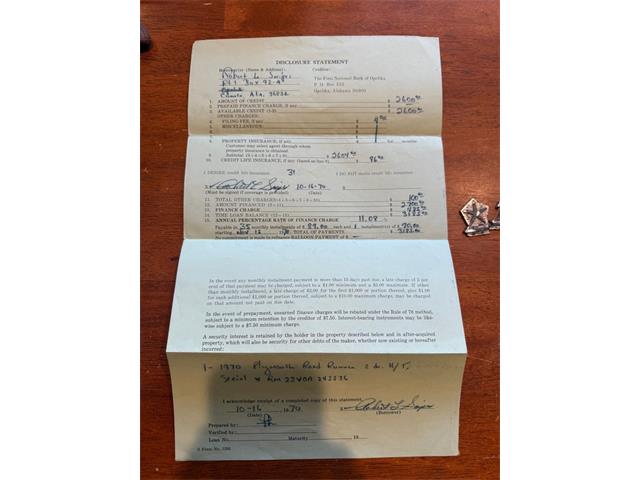 DISCLOSURE STATEMENT
Borrower(s) (Name & Address): Creditor:
Robert L.
Rt 1 Box 92-A The First National Bank of Opelika
P. O. Box
Cusseta, Ala. 36852 Opelika, Alabama 36801
1. AMOUNT OF CREDIT $ 2600.00
2. PREPAID FINANCE CHARGE, if any
3. AVAILABLE CREDIT (1-2) $ 2600.00
OTHER CHARGES:
4. FILING FEE, if any 4.00
5. MISCELLANEOUS
6.
7.
8. PROPERTY INSURANCE, if any
Customer may select agent through whom
property insurance is obtained.
9. Subtotal (3+4+5+6+7+8) $ 2604.00
10. CREDIT LIFE INSURANCE, if any (based on line 9) 96.00
I DESIRE credit life insurance I DO NOT desire credit life insurance
10-16-70
(Must be signed if coverage is provided) (Date)
11. TOTAL OTHER CHARGES (4+5+6+7+8+10) $ 100.00
12. AMOUNT FINANCED (3+11) $ 2700.00
13. FINANCE CHARGE
14. TIME LOAN BALANCE (12+13) $ 3185.00
15. ANNUAL PERCENTAGE RATE OF FINANCE CHARGE 11.08
Payable in 35 monthly installments of $ 89.00 each and 1 installment(s) of $ 70.00
starting Nov 15 1970 TOTAL OF PAYMENTS $ 3185.00
No commitment is made to refinance BALLOON PAYMENT OF $
In the event any monthly installment payment is more than 10 days past due, a late charge of 5 per
cent of that payment may be charged, subject to a $1.00 minimum and a $5.00 maximum. If other
than monthly installment, a late charge of $2.00 for the first $1,000 or portion thereof, plus $1.00
for each additional $1,000 or portion thereof, subject to a $10.00 maximum charge, may be charged
on that amount not paid on due date.
In the event of prepayment, unearned finance charges will be rebated under the Rule of 78 method,
subject to a minimum retention by the creditor of $7.50. Interest-bearing instruments may be like-
wise subject to a $7.50 minimum charge.
A security interest is retained by the holder in the property described below and in after-acquired
property, which will also be security for other debts of the maker, whether now existing or hereafter
incurred:
1- 1970 Plymouth Road Runner 2 dr. H/T,
Serial # RM 23V0A
I acknowledge receipt of a completed copy of this statement.
10-16 1970
(Date) (Borrower)
Prepared by:
Verified by:
Loan No. Maturity 19